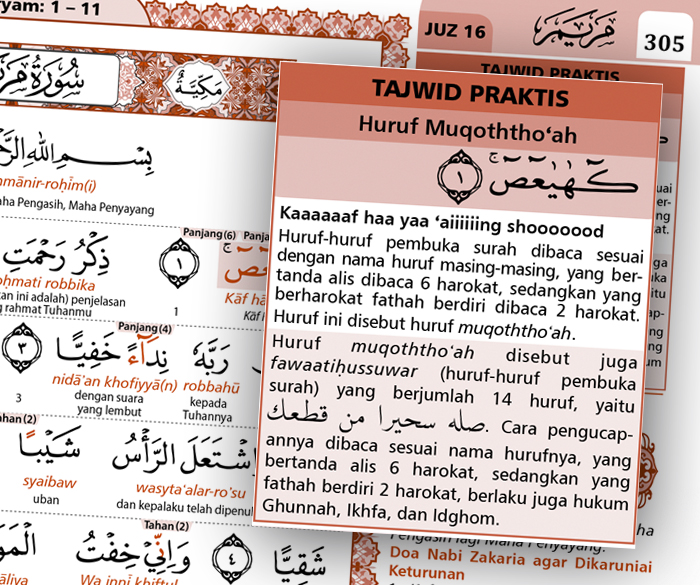 yam: 1 – 11
JUZ 16
مَرْيَمَ
305
TAJWID PRAKTIS
سُوْرَةُ مَرْ
مَكِّيَّةٌ
TAJWID PRAKTIS
Huruf Muqoththo‘ah
كۤهٰيٰعۤصۤ ۚ ١
Kaaaaaaf haa yaa ‘aiiiiiing shooooood
Huruf-huruf pembuka surah dibaca sesuai
dengan nama huruf masing-masing, yang ber-
tanda alis dibaca 6 harokat, sedangkan yang
berharokat fathah berdiri dibaca 2 harokat.
Huruf ini disebut huruf muqoththo‘ah.
Huruf muqoththo‘ah disebut juga
fawaatiḥussuwar (huruf-huruf pembuka
surah) yang berjumlah 14 huruf, yaitu
صله سحيرا من قطعك. Cara pengucap-
annya dibaca sesuai nama hurufnya, yang
bertanda alis 6 harokat, sedangkan yang
fathah berdiri 2 harokat, berlaku juga hukum
Ghunnah, Ikhfa, dan Idghom.
بِسْمِ اللهِ الرَّ
mānir-roḥīm(i)
ha Pengasih, Maha Penyayang
Panjang(6) Panja
ذِكْرُ رَحْمَتِ ١ عۤصۤ ۚ
oḥmati robbika
Kāf hā
kan ini adalah) penjelasan
g rahmat Tuhanmu
1
Kāf
Panjang(4)
رَبَّهٗ نِدَاۤءً خَفِيًّا ٣
nidā'an khofiyyā(n) robbahū
dengan suara
yang lembut
kepada
Tuhannya
3
ahan(2)
اشْتَعَلَ الرَّأْسُ شَيْبًا
syaibaw wasyta‘alar-ro'su
uban dan kepalaku telah dipenu
Tahan(2)
شَقِيًّا ٤ وَاِنِّيْ خِفْتُ الْمَوَ
āliya Wa innī khiftul
Pengasih lagi Maha Penyayang.
Doa Nabi Zakaria agar Dikaruniai
Keturunan